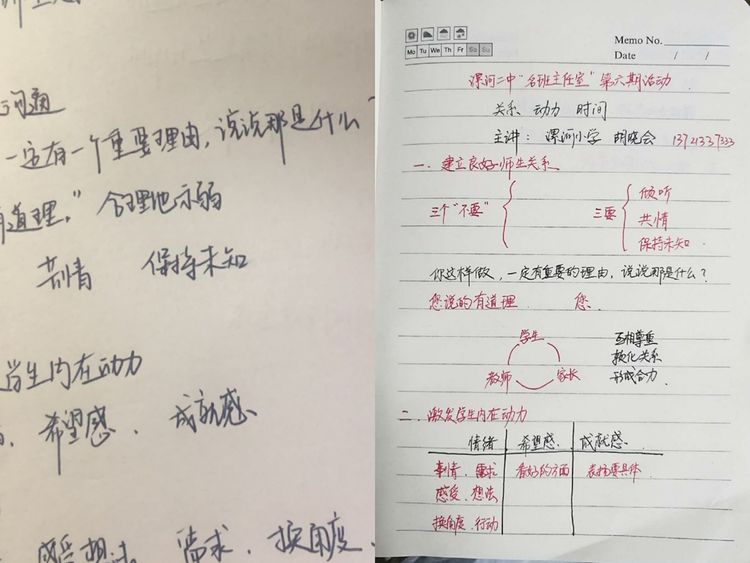 沟通
一定有一个重要理由,说说那是什么?
有道理。" 合理地示弱
共情 保持未知
学生内在动力
希望感、 成就感、
感受 想法 需求、换角度、
Mo Tu We Th Fr Sa Su
Memo No.
Date / /
漯河二中"名班主任室"第六期活动
关系 动力 时间
主讲: 漯河小学 胡晓会 13721337333
一、建立良好师生关系
三个"不要" 三要 倾听
共情
保持未知
你这样做,一定有重要的理由,说说那是什么?
您说的有道理 您
学生
教师 家长
互相尊重
软化关系
形成合力
二、激发学生内在动力
情绪 希望感、 成就感、
事情、需求 看好的方面 表扬要具体
感受、想法
换角度、行动